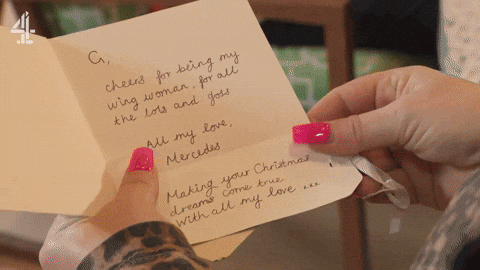 4
G,
cheers for being my
wing woman, for all
the lols and goss
All my love,
Mercedes
Making your Christmas
dreams come true
with all my love ...